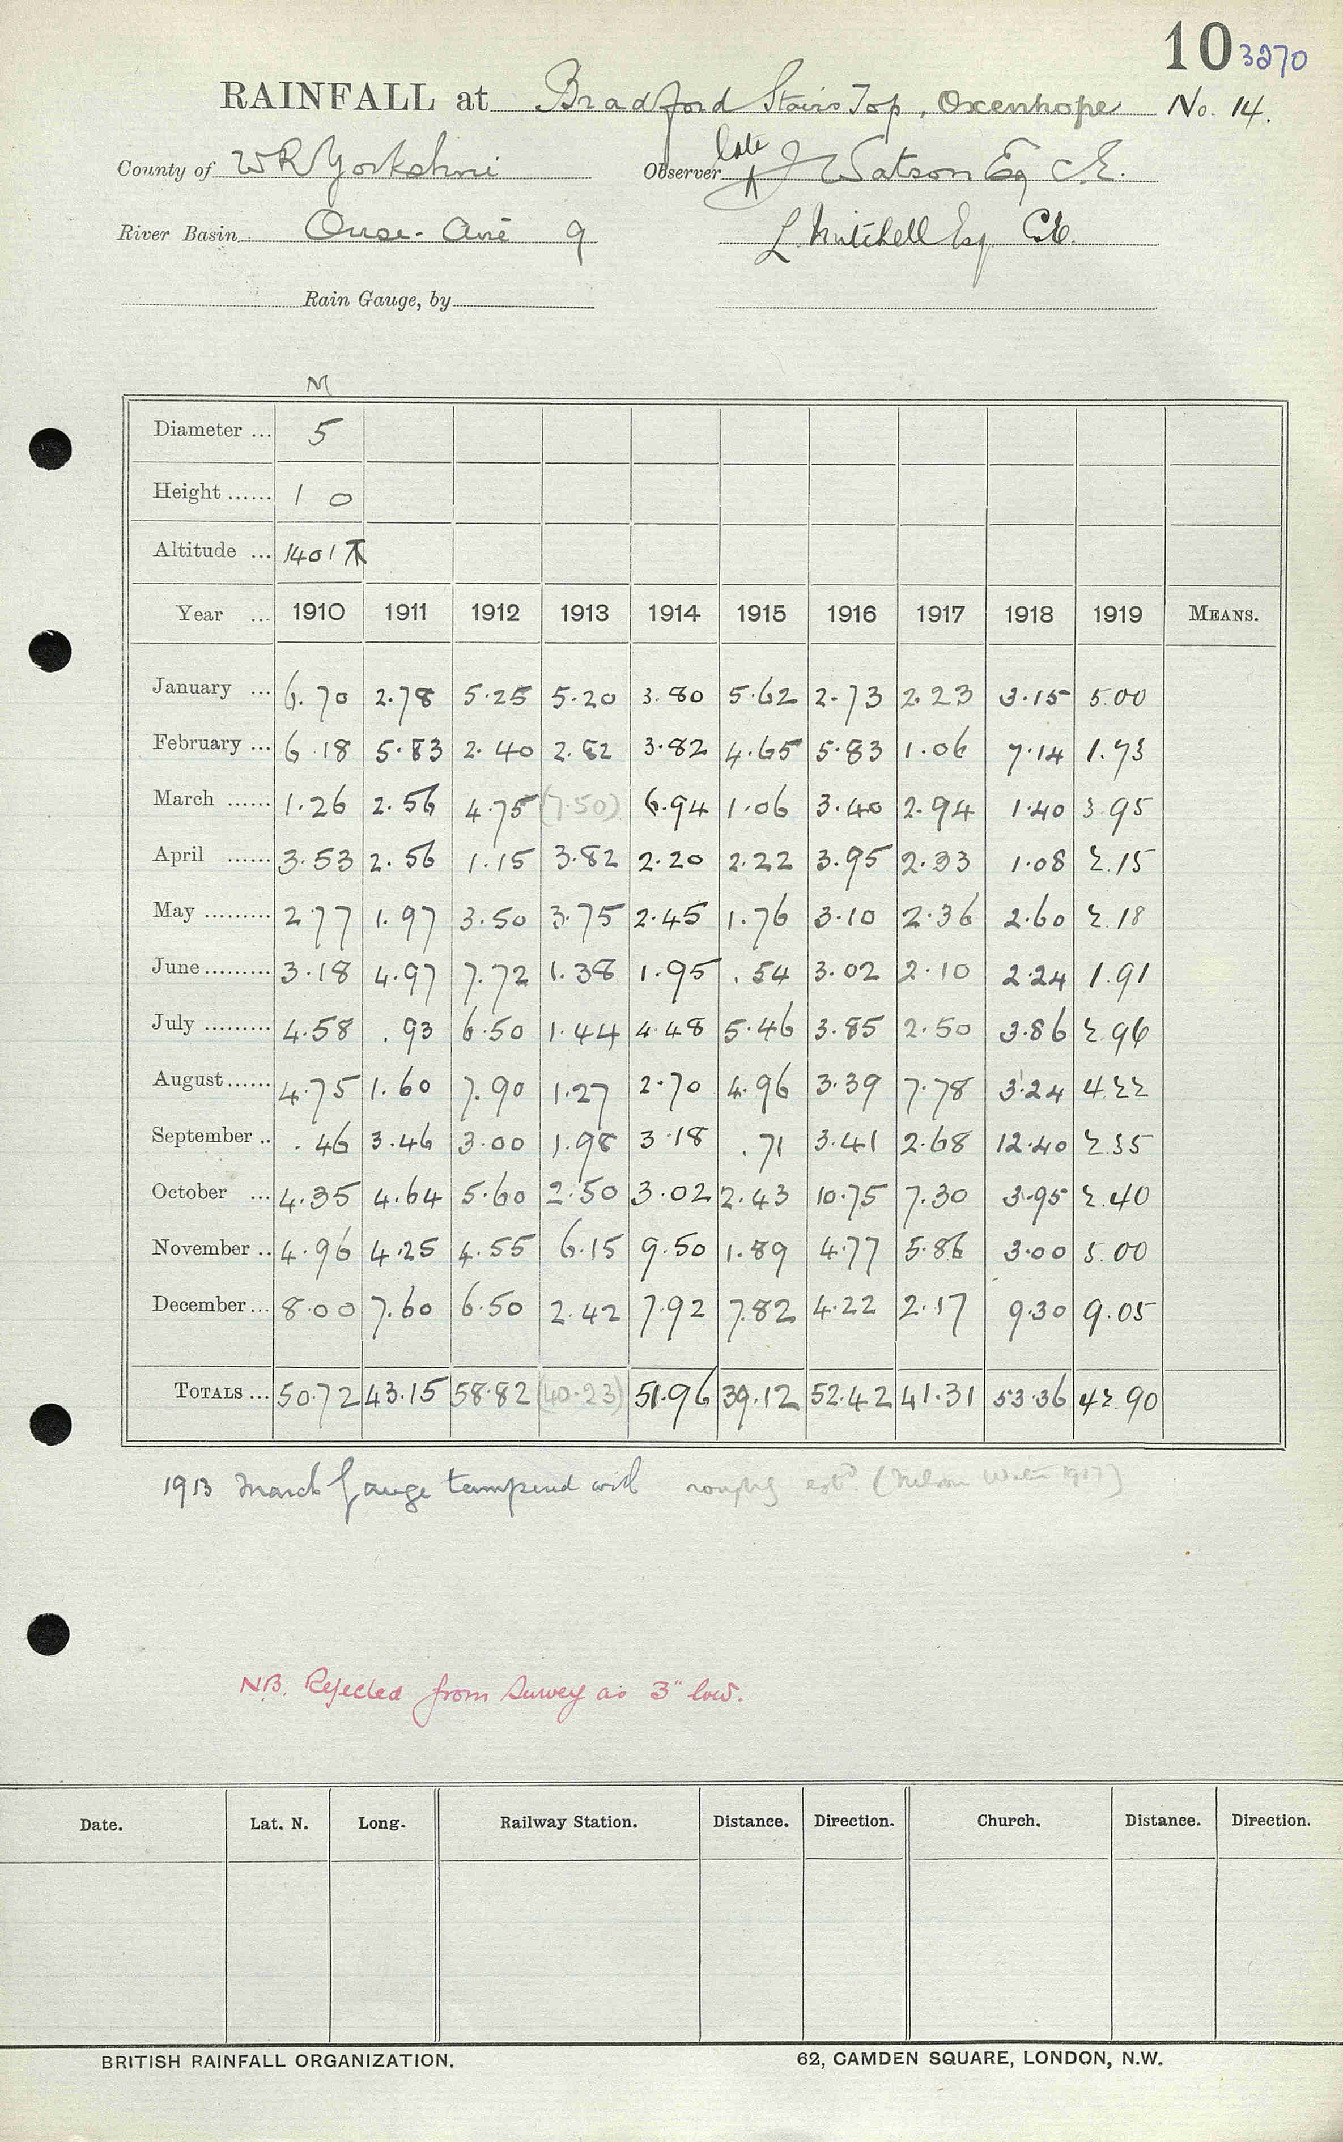 10 3270
RAINFALL at Bradford Stairs Top, Oxenhope No. 14.
County of W R Yorkshire Observer late J Watson Esq C.E.
River Basin Ouse - Aire 9 L. Mitchell Esq C.E.
Rain Gauge, by
M
Diameter ... 5
Height ...... 1 0
Altitude ... 1401
Year ... 1910 1911 1912 1913 1914 1915 1916 1917 1918 1919 MEANS.
January ... 6.70 2.78 5.25 5.20 3.80 5.62 2.73 2.23 3.15 5.00
February ... 6.18 5.83 2.40 2.82 3.82 4.65 5.83 1.06 7.14 1.73
March ...... 1.26 2.56 4.75 (7.50) 6.94 1.06 3.40 2.94 1.40 3.95
April ...... 3.53 2.56 1.15 3.82 2.20 2.22 3.95 2.33 1.08 2.15
May ......... 2.77 1.97 3.50 3.75 2.45 1.76 3.10 2.36 2.60 2.18
June ......... 3.18 4.97 7.72 1.38 1.95 .54 3.02 2.10 2.24 1.91
July ......... 4.58 .93 6.50 1.44 4.48 5.46 3.85 2.50 3.86 2.96
August ...... 4.75 1.60 7.90 1.27 2.70 4.96 3.39 7.78 3.24 4.22
September .. .46 3.46 3.00 1.98 3.18 .71 3.41 2.68 12.40 2.35
October ... 4.35 4.64 5.60 2.50 3.02 2.43 10.75 7.30 3.95 2.40
November .. 4.96 4.25 4.55 6.15 9.50 1.89 4.77 5.86 3.00 5.00
December ... 8.00 7.60 6.50 2.42 7.92 7.82 4.22 2.17 9.30 9.05
TOTALS ... 50.72 43.15 58.82 (40.23) 51.96 39.12 52.42 41.31 53.36 42.90
1913 March Gauge tampered with roughly estd (Nelson Water 1917)
N.B. Rejected from Survey as 3" low.
Date. Lat. N. Long. Railway Station. Distance. Direction. Church. Distance. Direction.
BRITISH RAINFALL ORGANIZATION. 62, CAMDEN SQUARE, LONDON, N.W.